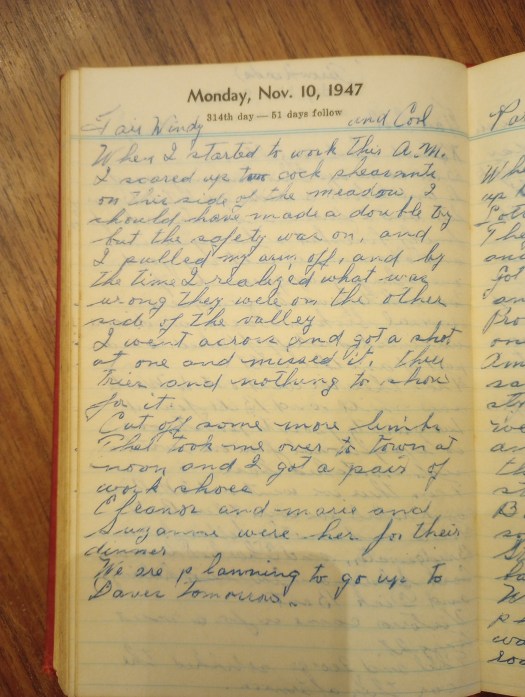 Monday, Nov. 10, 1947
314th day — 51 days follow
Fair Windy and Cool
When I started to work this A.M.
I scared up two cock pheasants
on this side of the meadow I
should have made a double by
but the safety was on, and
I pulled my arm off, and by
the time I realized what was
wrong they were on the other
side of the valley
I went across and got a shot
at one and missed it. three
tries and nothing to show
for it.
Cut off some more limbs
That took me over to town at
noon and I got a pair of
work shoes
Eleanor and marie and
Suzanne were her for their
dinner
We are planning to go up to
Daves tomorrow.